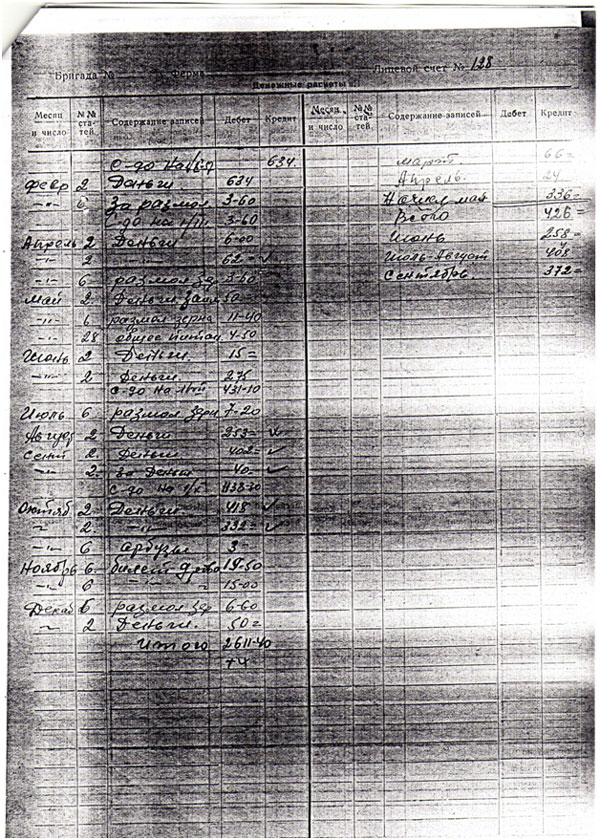 Бригада № Ферма Лицевой счет № 128
Денежные расчеты
Месяц и число №№ статей Содержание записей Дебет Кредит Месяц и число №№ статей Содержание записей Дебет Кредит
С-до на 634
февр 2 Деньги 634
-"- 6 За размол 3-60
С-до на 1/IV 3-60
Апрель 2 Деньги 6-00
-"- 2 62= ✓
-"- 6 размол зер 3-60
май 2 Деньги 50=
-"- 6 размол зерна 11-40
-"- 28 общее питан 4-50
Июнь 2 Деньги 15=
-"- 2 Деньги 275
С-до на 431-10
Июль 6 размол зерн 7-20
Август 2 Деньги 253= ✓
Сент 2 Деньги 402= ✓
2 За Деньги 40= ✓
С-до на 1/X
Октяб 2 Деньги 418 ✓
2 -"- 332= ✓
-"- 6 арбузы 3
Ноябрь 6 билет 19-50
6 15-00
Декаб 6 размол зер 6-60
2 Деньги 50=
Итого 2611-40
март 66=
Апрель 24
Начисл мая 336=
Всего 426=
Июнь 258=
Июль-Август 408
Сентябрь 372=